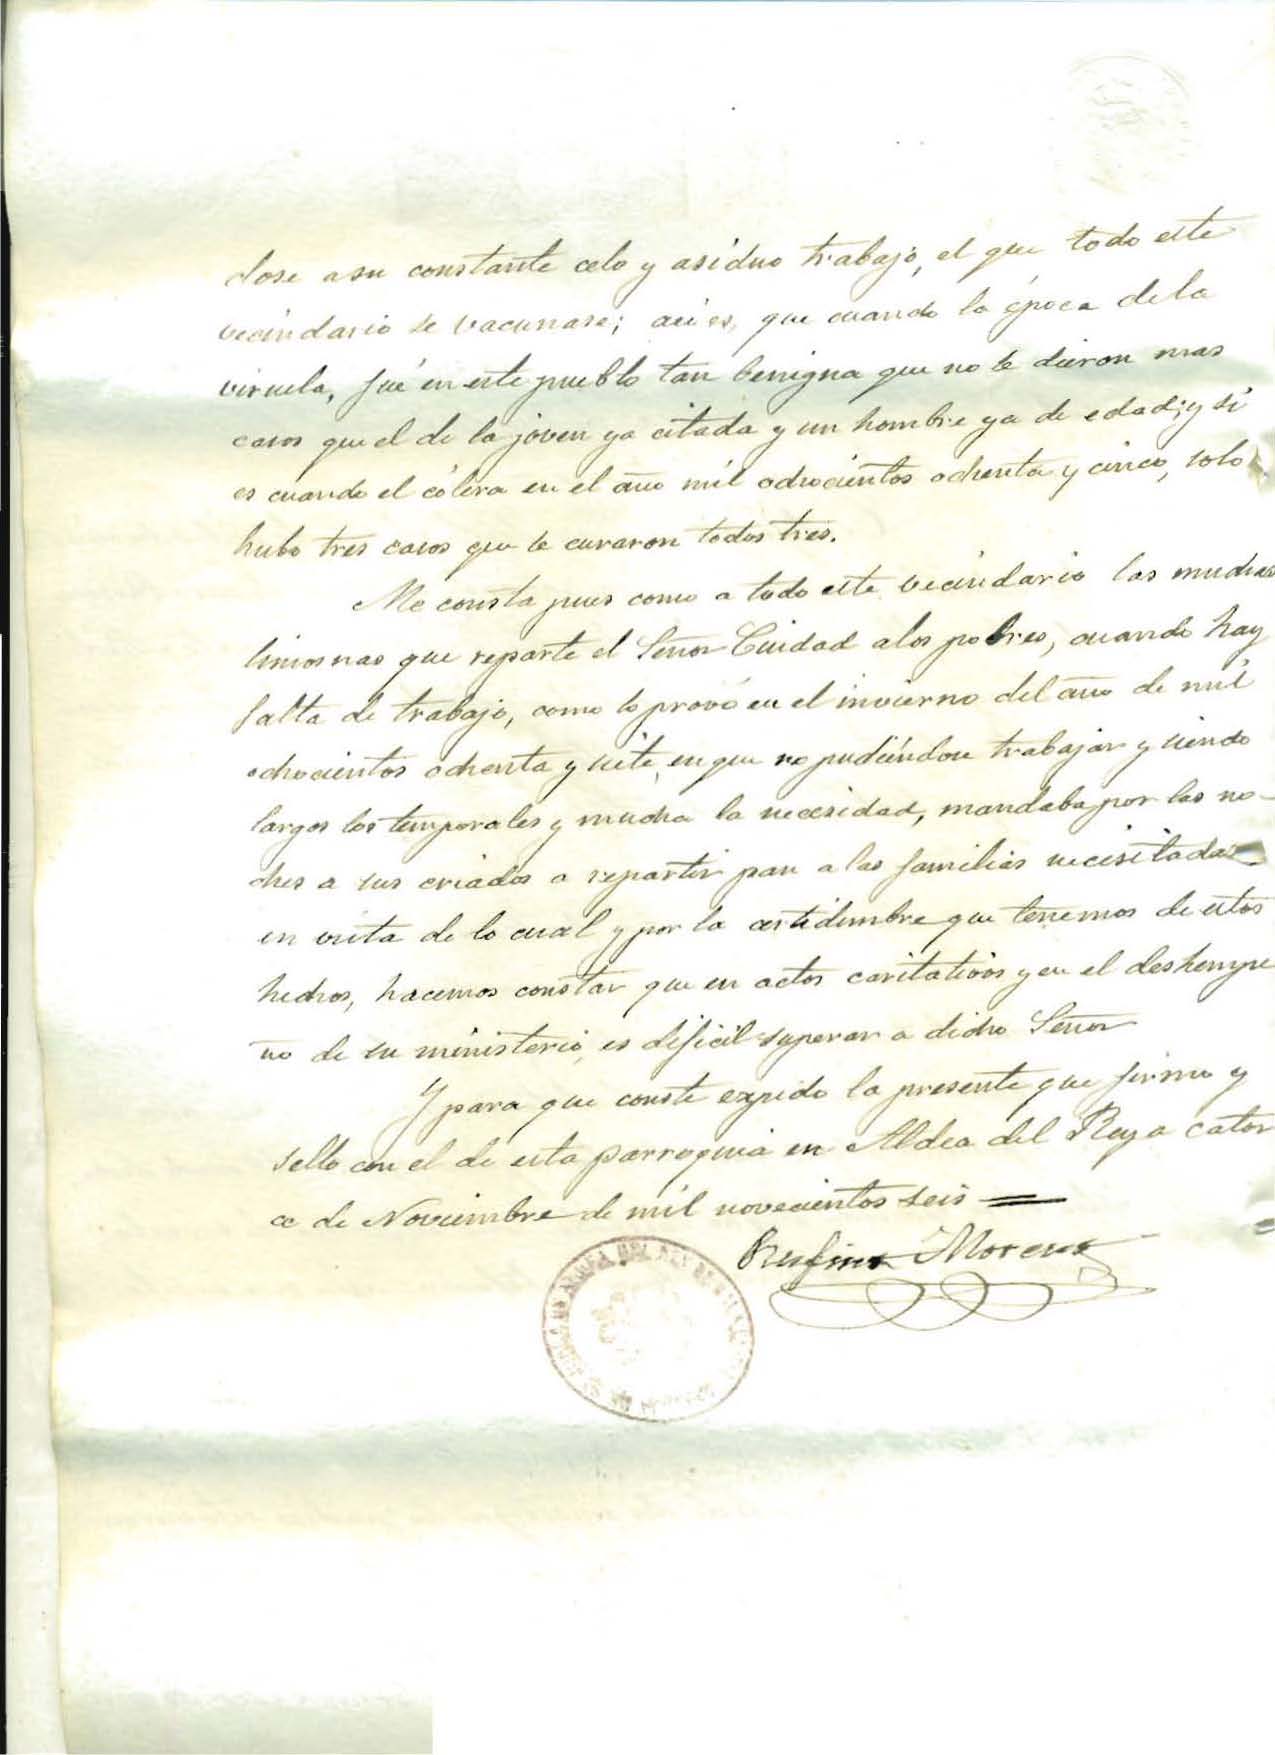 dose a su constante celo y asiduo trabajo, el que todo este
vecindario se vacunase; asi es, que cuando la época de la
viruela, fué en este pueblo tan benigna que no se dieron mas
casos que el de la joven ya citada y un hombre ya de edad; y si
es cuando el cólera en el año mil ochocientos ochenta y cinco, solo
hubo tres casos que se curaron todos tres.
Me consta pues como a todo este vecindario las muchas
limosnas que reparte el Señor Ciudad a los pobres, cuando hay
falta de trabajo, como lo provó en el invierno del año de mil
ochocientos ochenta y siete, en que no pudiéndose trabajar y siendo
largos los temporales y mucha la necesidad, mandaba por las no-
ches a sus criados a repartir pan a las familias necesitadas
en vista de lo cual y por la certidumbre que tenemos de estos
hechos, hacemos constar que en actos caritativos y en el deshempe
ño de su ministerio, es dificil superar a dicho Señor
Y para que conste expido la presente que firmo y
sello con el de esta parroquia en Aldea del Rey a cator
ce de Noviembre de mil novecientos seis
Rufino Moreno
ALDEA DEL REY